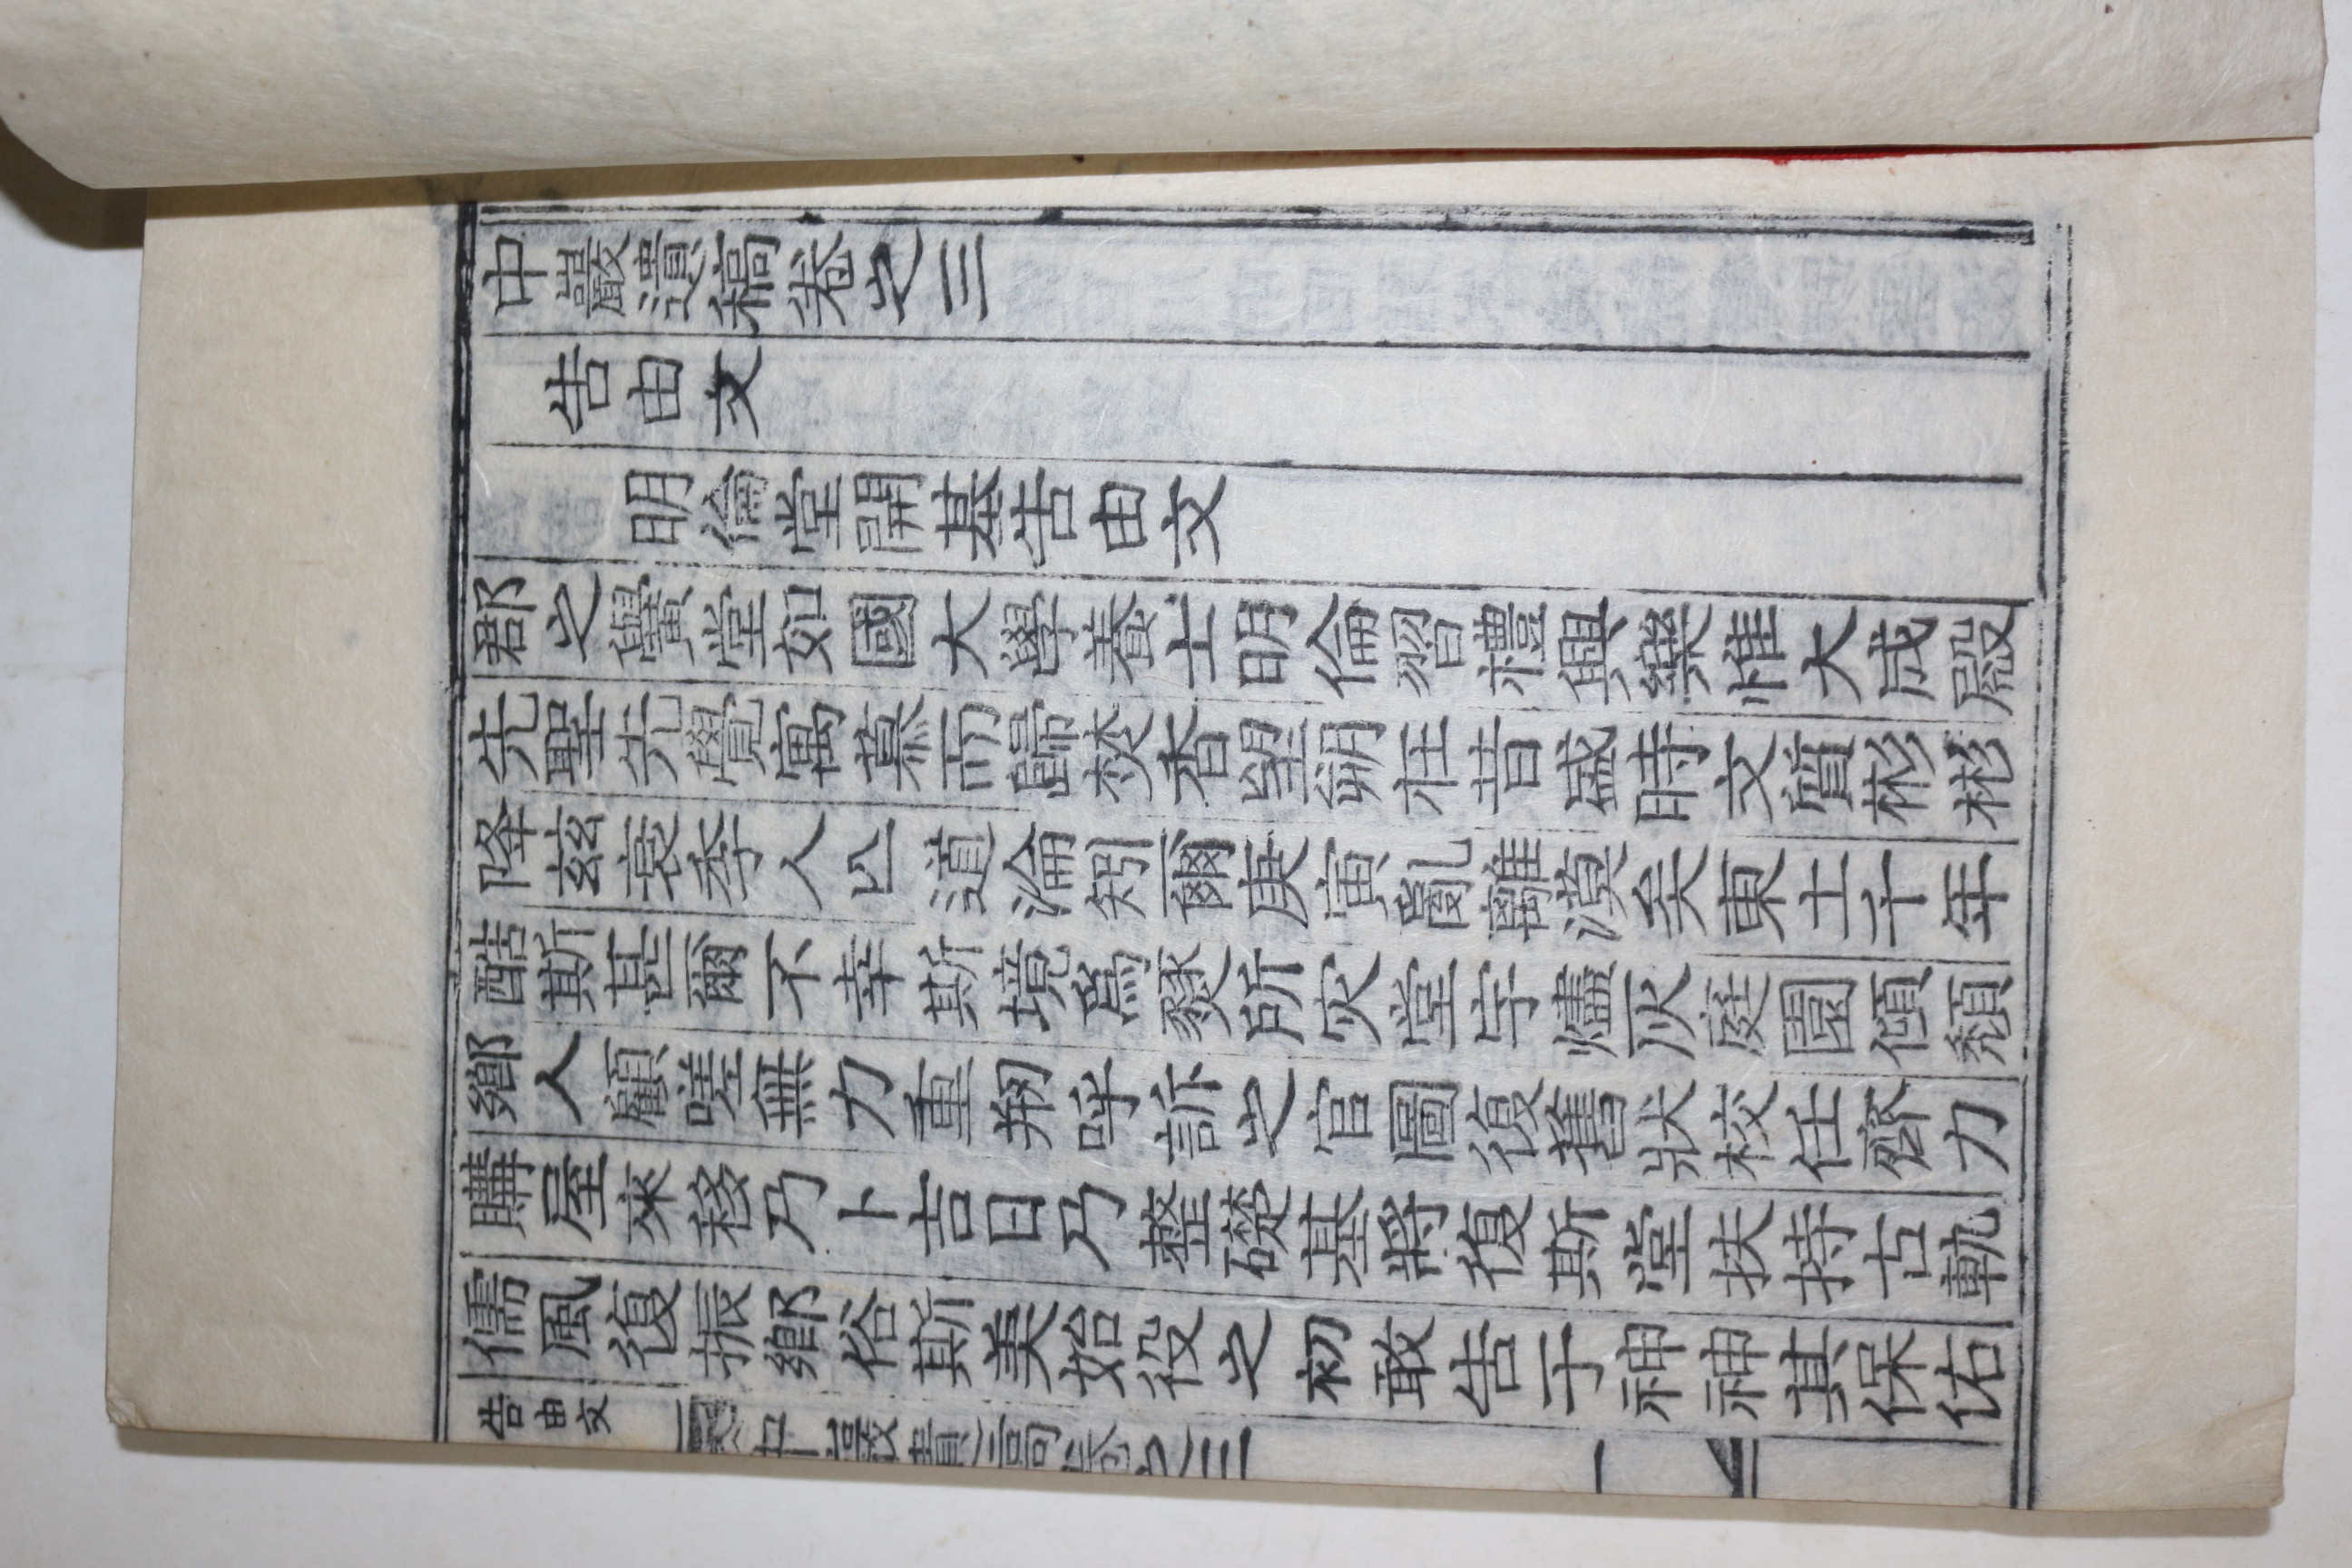 中巖遺稿卷之三
告由文
明倫堂開基告由文
郡之黌堂如國大學養士明倫習禮興樂惟大成殿
先聖先覺寓慕而歸焚香望朔在昔盛時文質彬彬
降玆衰季人亾道淪矧爾庚寅亂離漠矣東土千年
酷斯甚爾不幸斯境爲燹所灾堂宇燼灰庭園傾頹
鄉人顧嗟無力重刱呼訴之官圖復舊狀校任齊力
購屋來移乃卜吉日乃整礎基將復斯堂扶持古軌
儒風復振鄉俗斯美始役之初敢告于神神其保佑
告由文 中巖遺稿卷之三 一